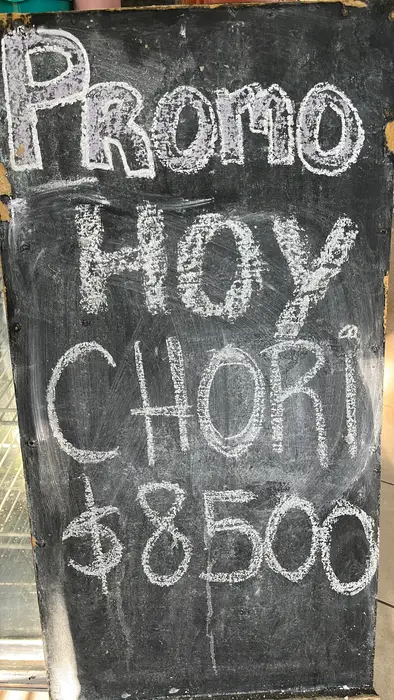 PROMO
HOY
CHORi
$8500